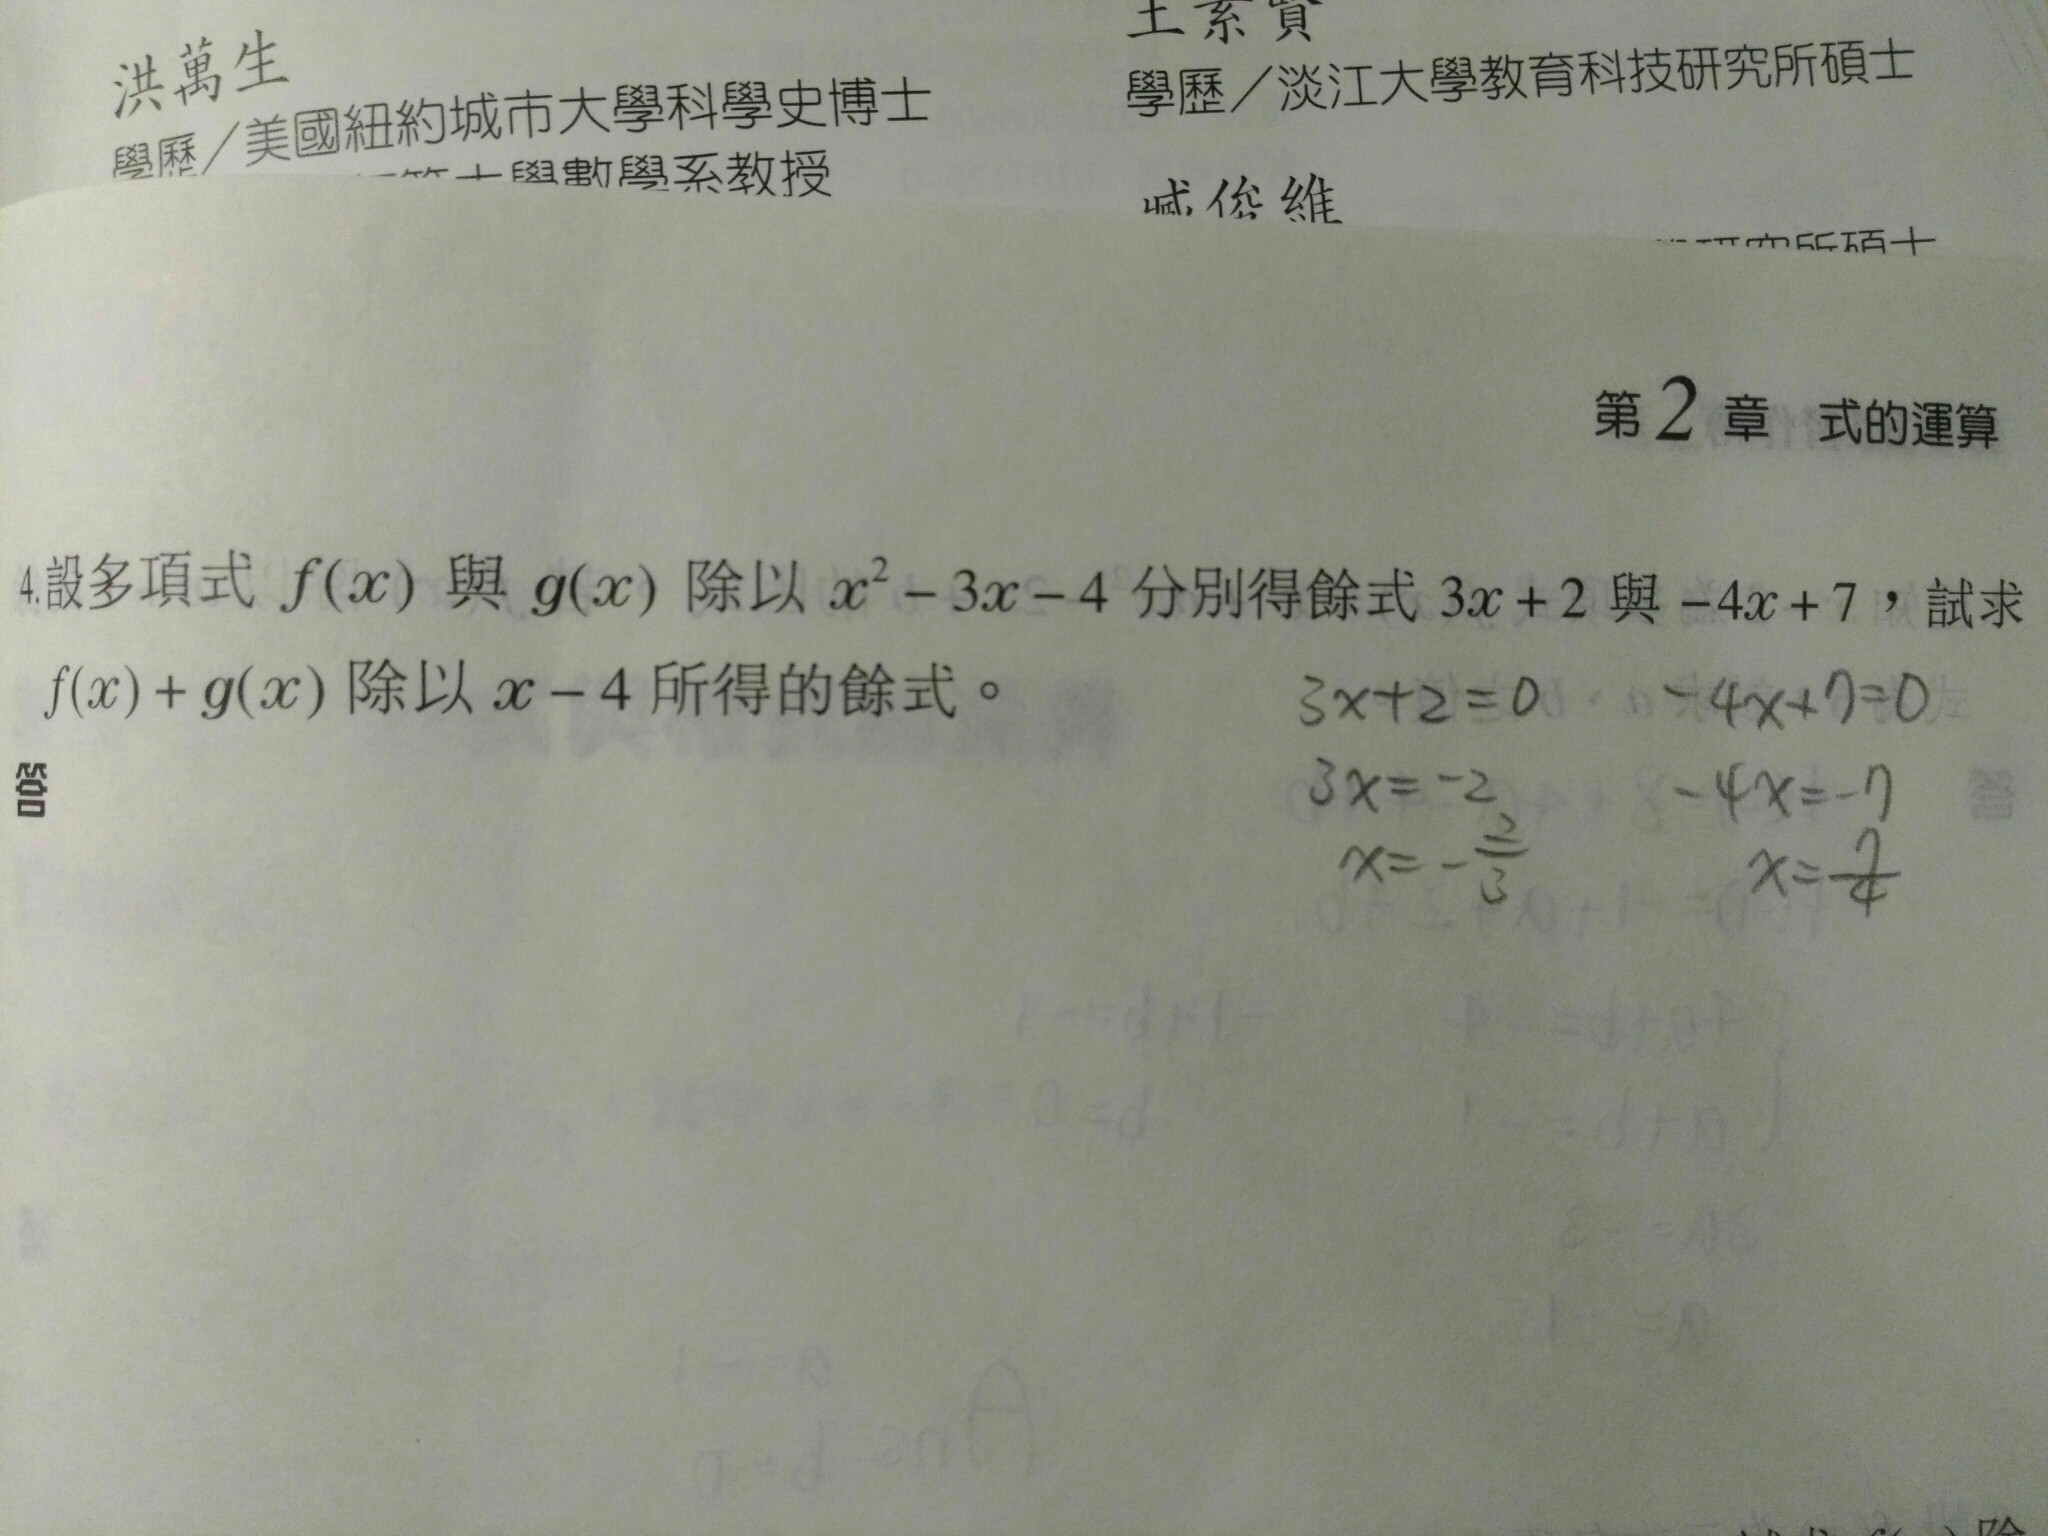 洪萬生
學歷／美國紐約城市大學科學史博士
大學數學系教授
王素賢
學歷／淡江大學教育科技研究所碩士
臧俊維
研究所碩士
第2章 式的運算
4.設多項式 f(x) 與 g(x) 除以 x² − 3x − 4 分別得餘式 3x + 2 與 −4x + 7，試求
f(x) + g(x) 除以 x − 4 所得的餘式。
3x+2=0 -4x+7=0
3x=-2 -4x=-7
x=-2/3 x=7/4
答